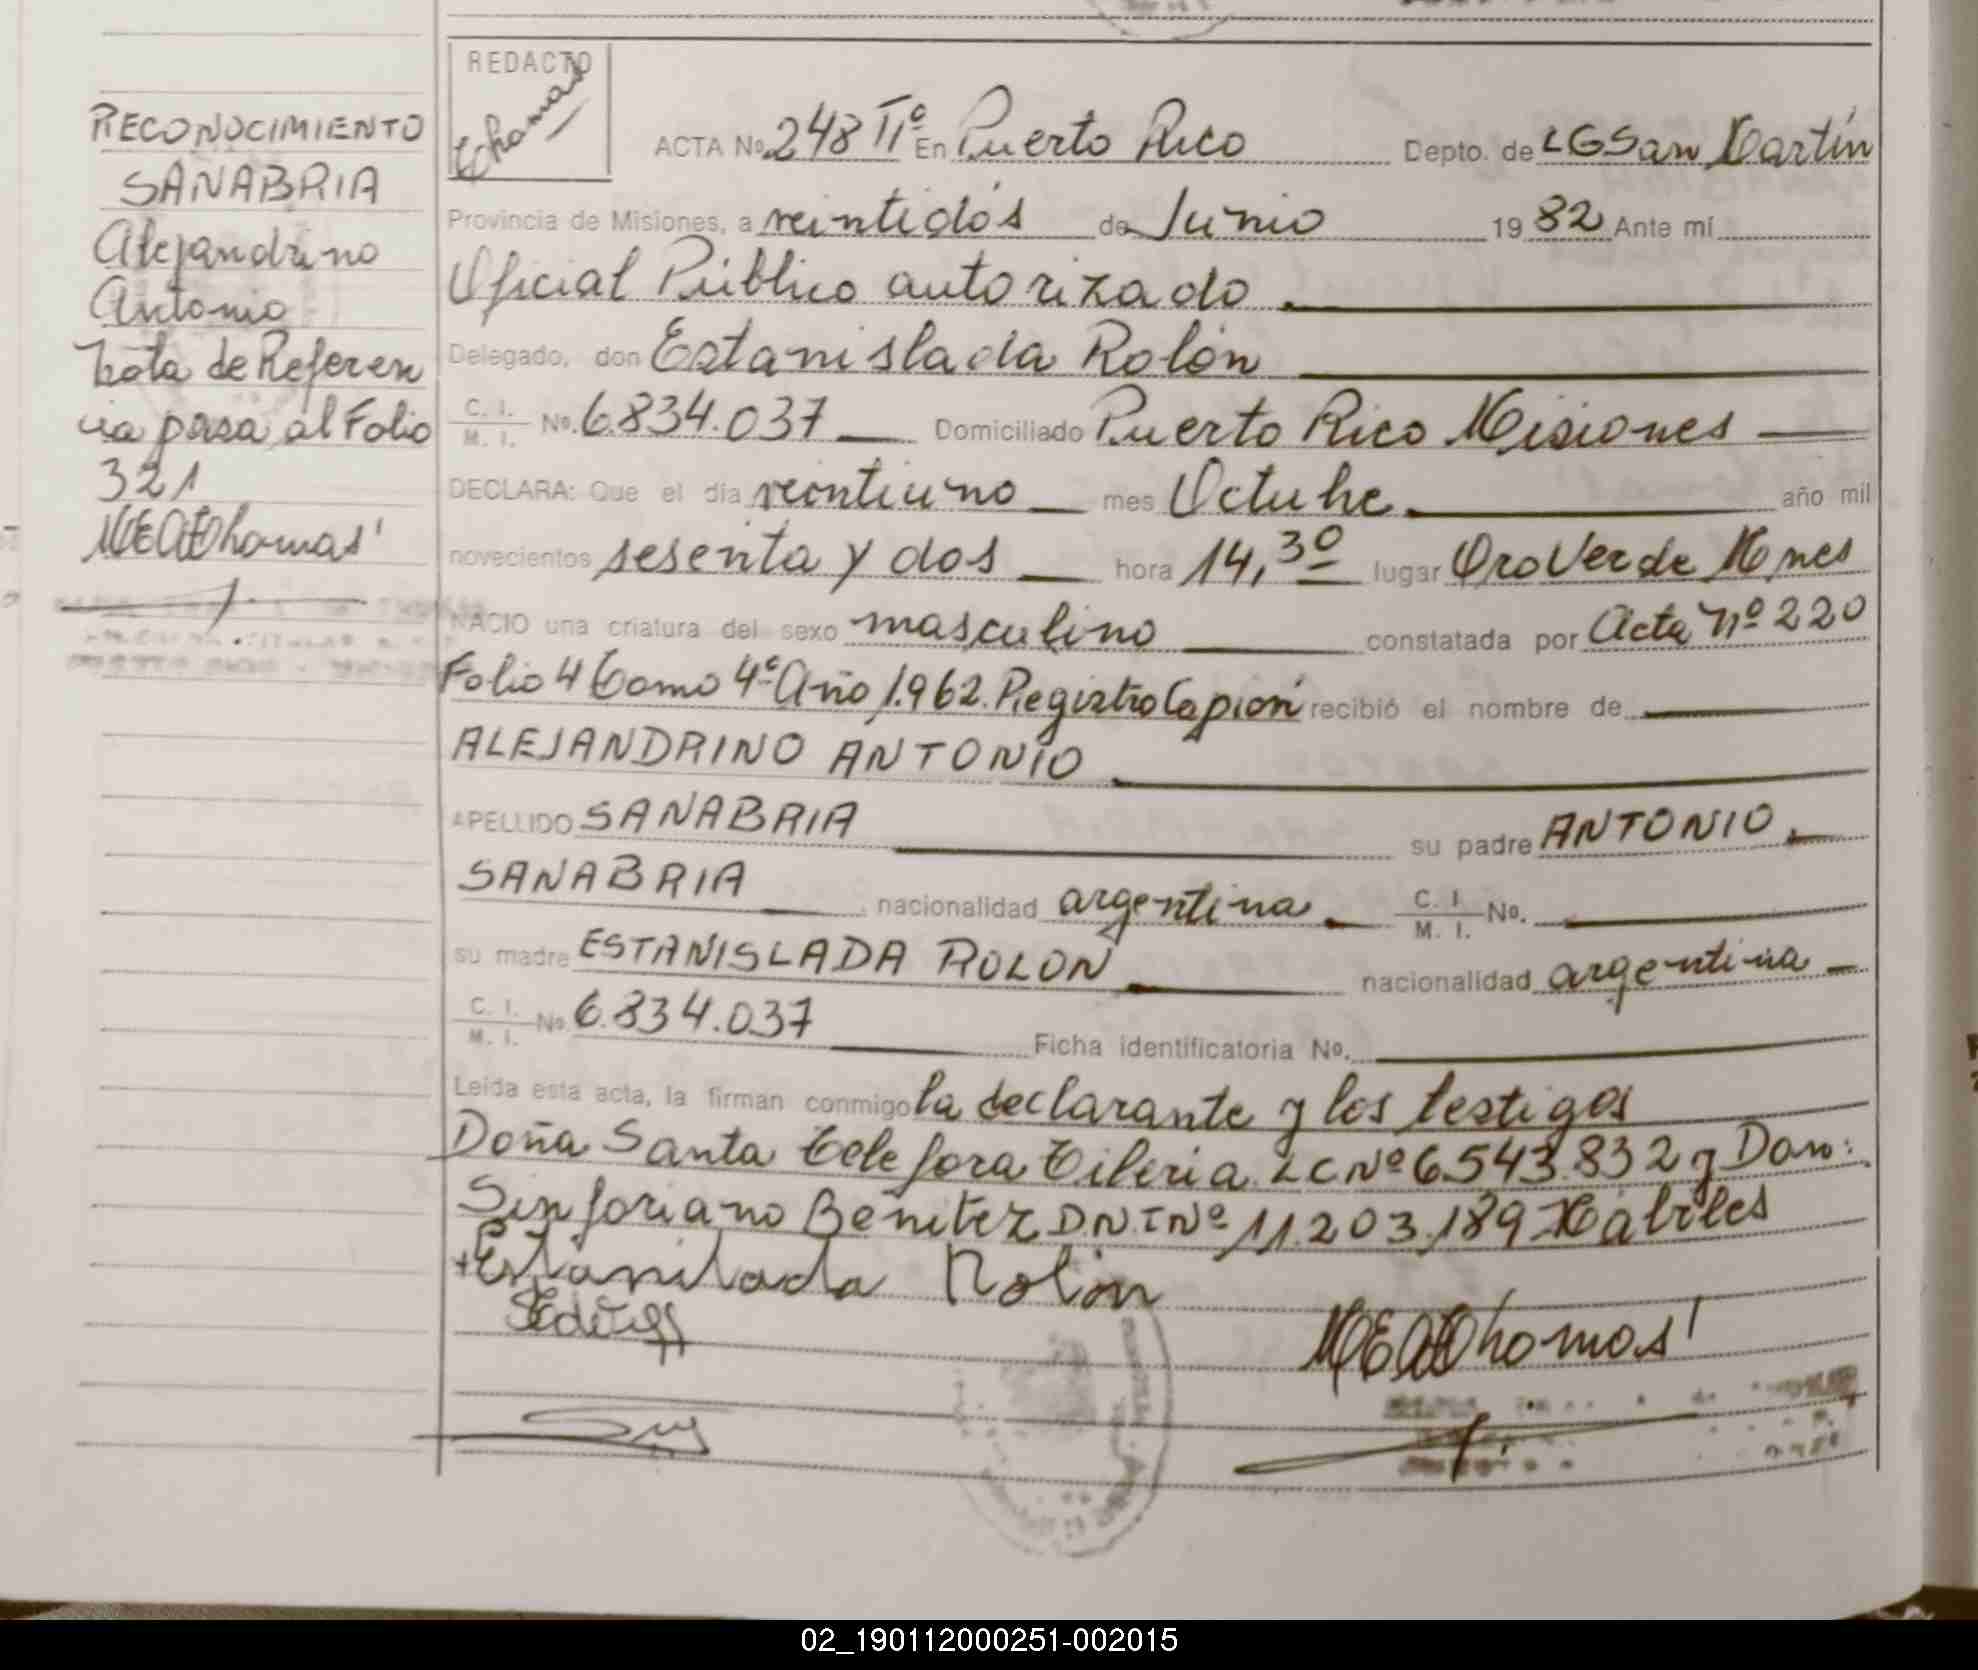 RECONOCIMIENTO
SANABRIA
Alejandrino
Antonio
Nota de Referen
cia pasa al Folio
321
REDACTO
Thomas
ACTA No. 248 IIº En Puerto Rico Depto. de LGSan Martín
Provincia de Misiones, a veintidós de Junio 1982 Ante mí
Oficial Público autorizado
Delegado, don Estanislada Rolón
C. I. M. I. No. 6.834.037 Domiciliado Puerto Rico Misiones
DECLARA: Que el día veintiuno mes Octubre año mil
novecientos sesenta y dos hora 14,30 lugar Oro Verde Mnes
NACIO una criatura del sexo masculino constatada por Acta Nº 220
Folio 4 Tomo 4º Año 1.962. Registro Capioví recibió el nombre de
ALEJANDRINO ANTONIO
APELLIDO SANABRIA su padre ANTONIO
SANABRIA nacionalidad argentina C. I. M. I. No.
su madre ESTANISLADA ROLON nacionalidad argentina
C. I. M. I. No. 6.834.037 Ficha identificatoria No.
Leída esta acta, la firman conmigo la declarante y los testigos
Doña Santa Telefora Tileria LC Nº 6.543.832 y Don:
Sinforiano Benitez D.N.I Nº 11.203.189 Hábiles
+Estanilada Rolón
02_190112000251-002015